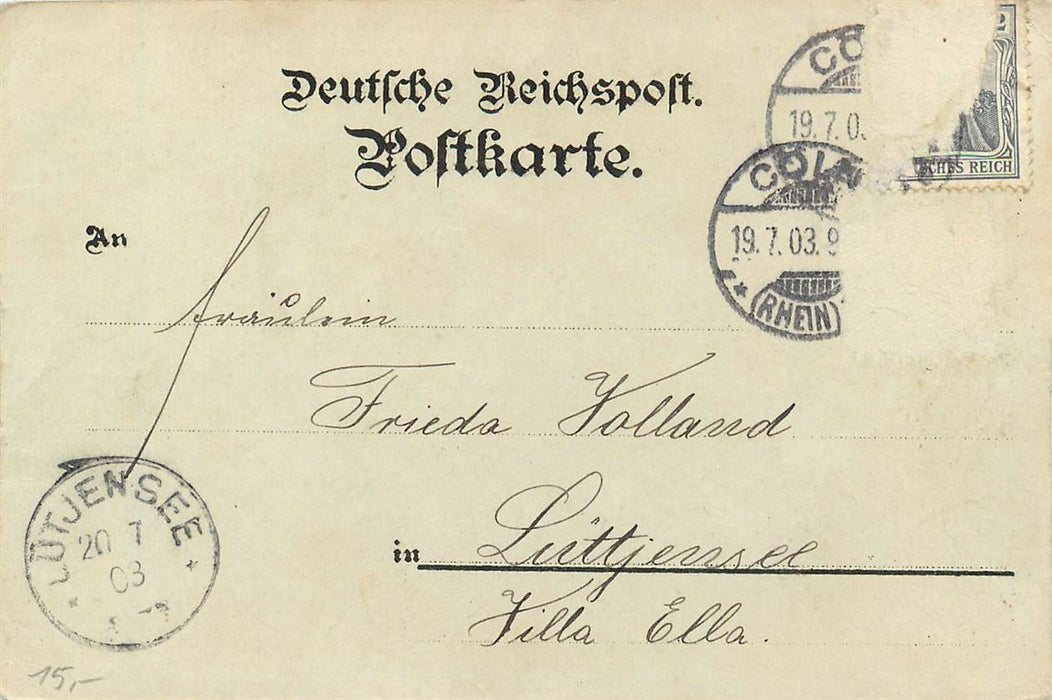 Deutsche Reichspost.
Postkarte.
CÖ
19.7.0
CÖLN
19.7.03.9
(RHEIN)
2
SCHES REICH
An
Fräulein
Frieda Volland
in Lüttjensee
Villa Ella.
LÜTJENSEE
20 7
03
15,-